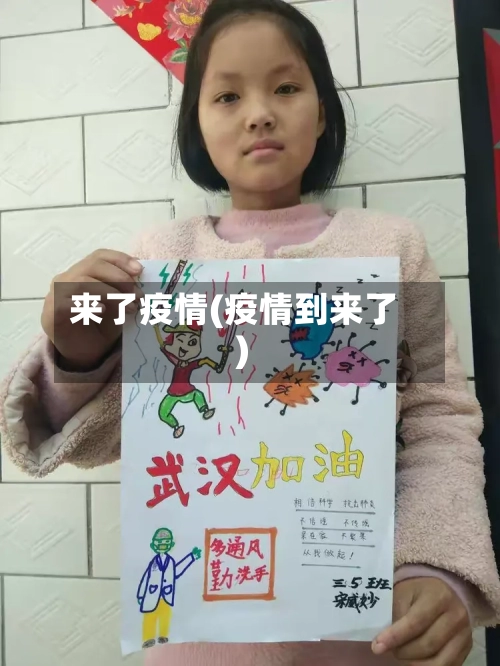 来了疫情(疫情到来了
)
武汉加油
相信科学 抗击肺炎
不信谣 不传谣
不聚集
从我做起！
多通风
勤洗手
三.5班